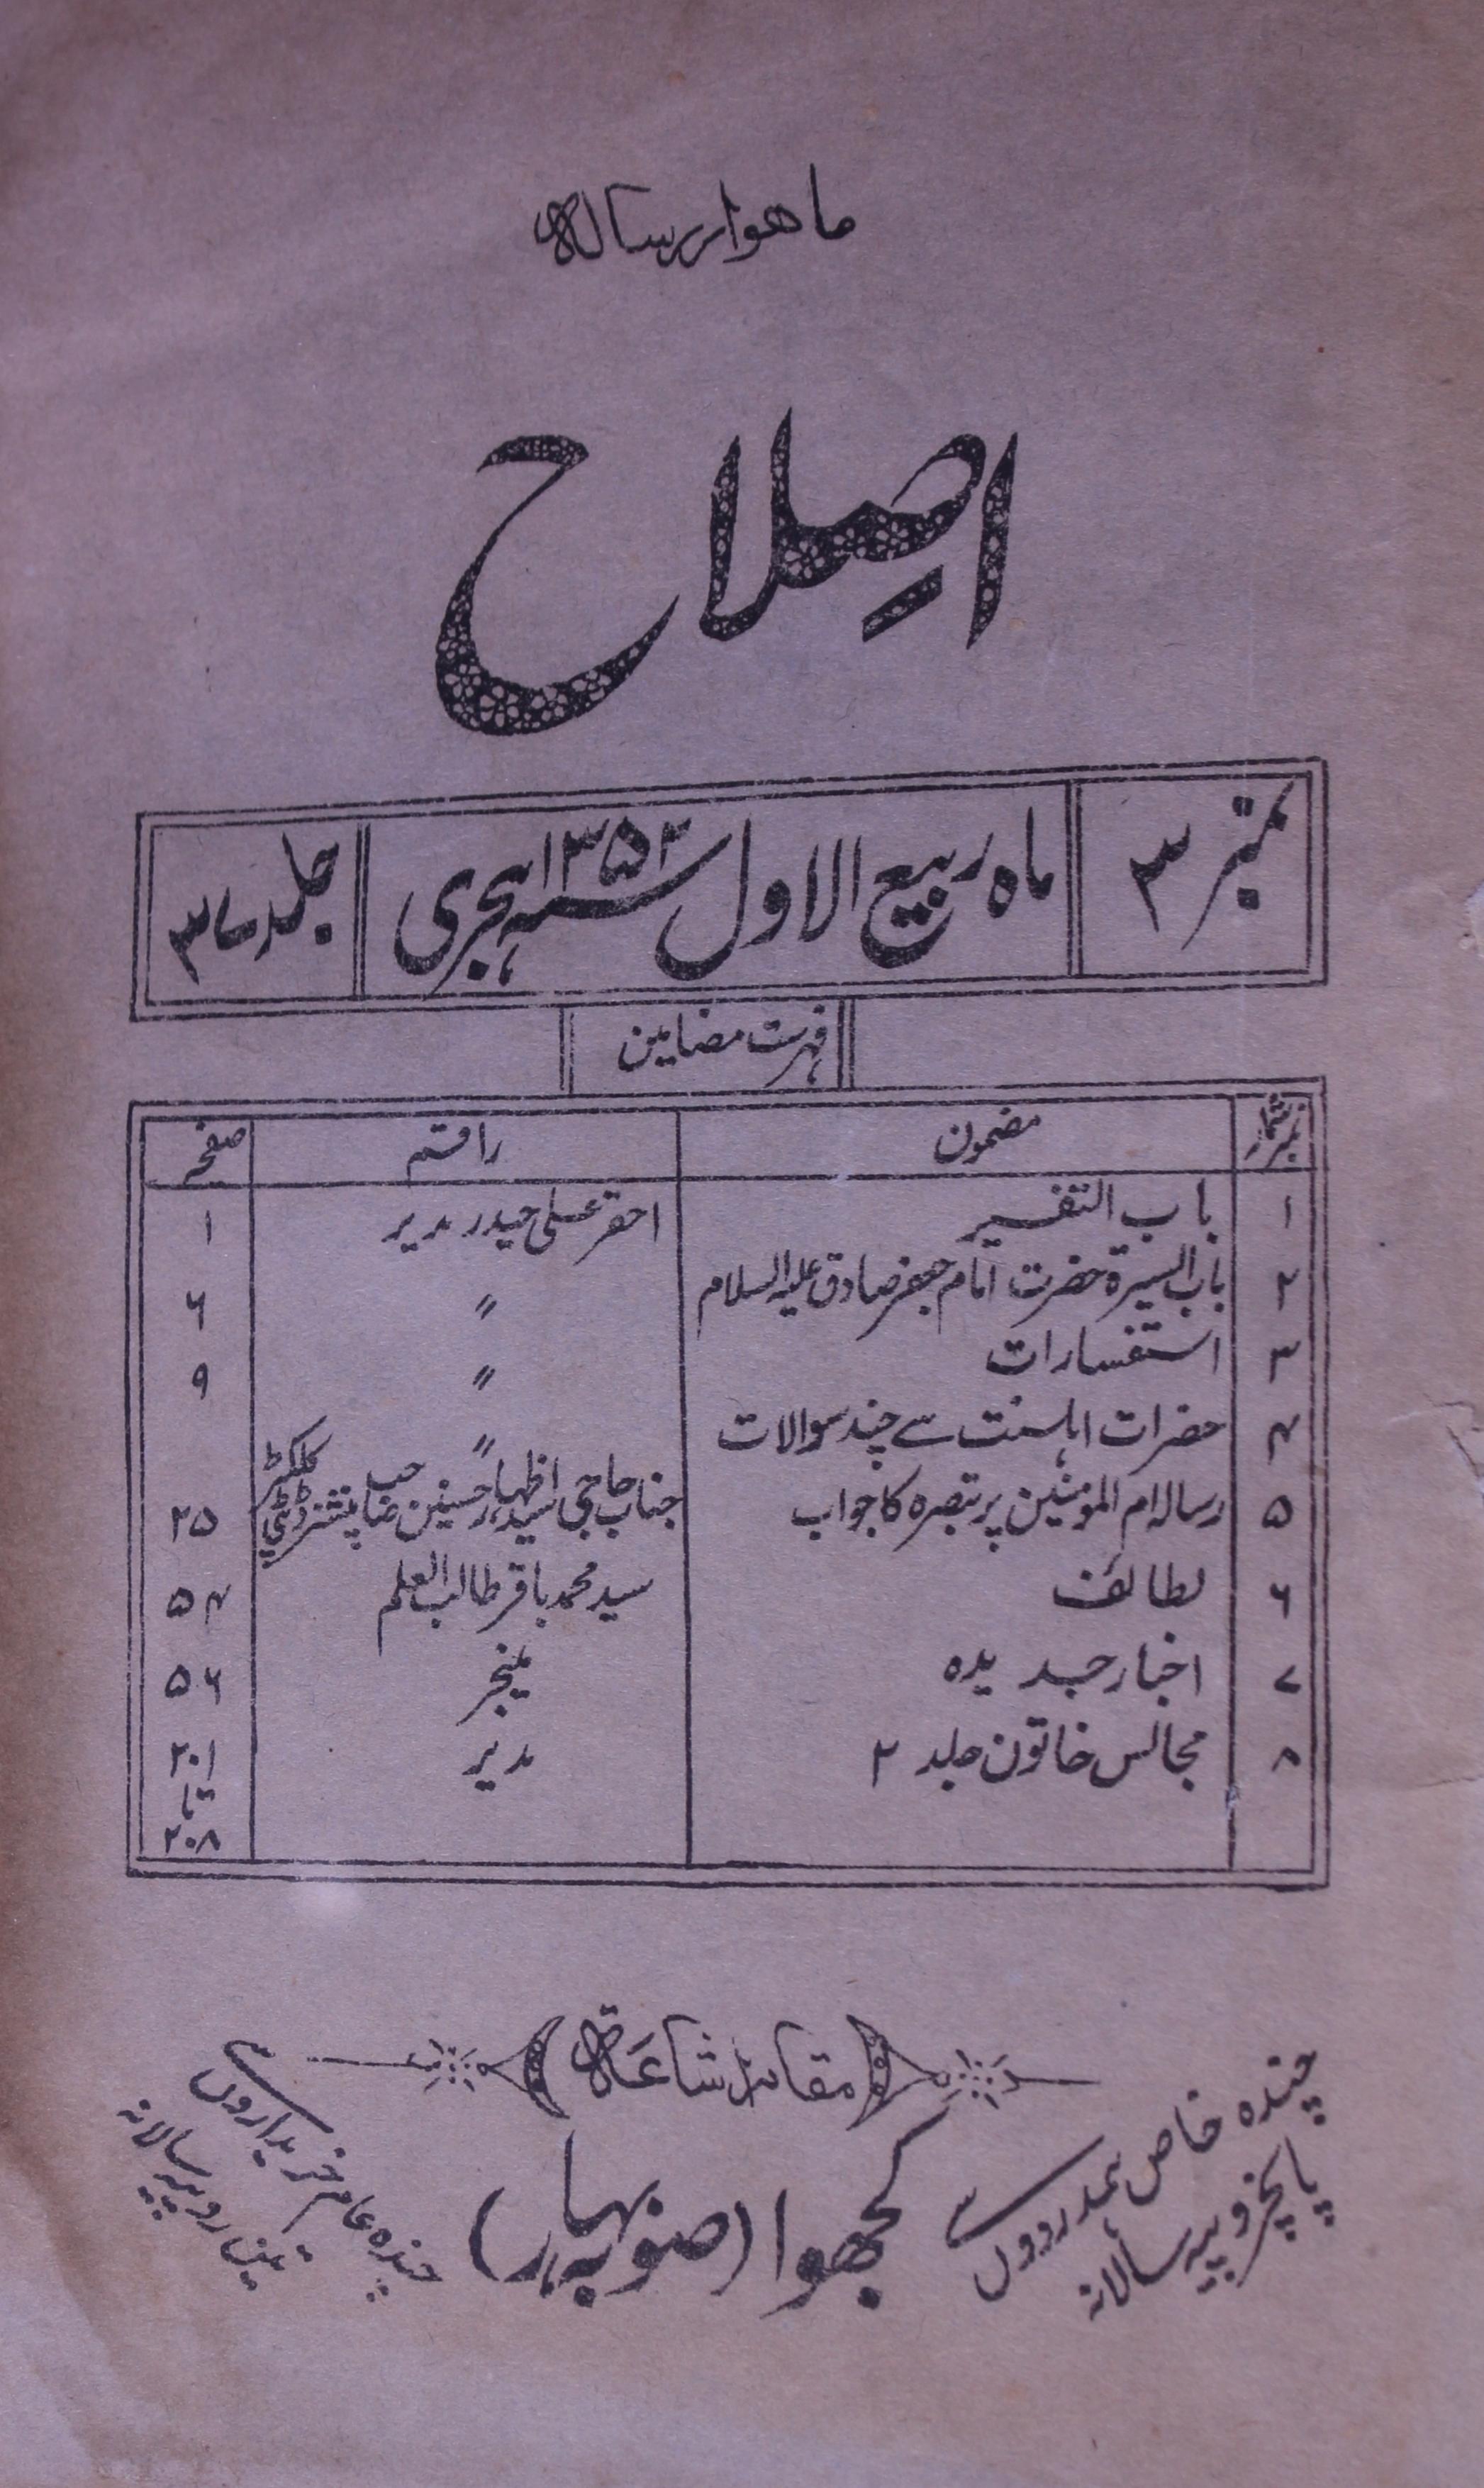 ماهوار رساله
اصلاح
نمبر ۳
ماہ ربیع الاول سنہ ۱۳۵۲ ہجری
جلد ۳۷
فہرست مضامین
نمبر شمار مضمون راقم صفحہ
۱ باب التفسیر احقر علی حیدر مدیر ۱
۲ باب السیرۃ حضرت امام جعفر صادق علیہ السلام 〃 ۶
۳ استفسارات 〃 ۹
۴ حضرات اہلسنت سے چند سوالات 〃
۵ رسالہ ام المومنین پر تبصرہ کا جواب جناب حاجی سید اظہار حسنین صاحب پنشنر ڈپٹی کلکٹر ۲۵
۶ لطائف سید محمد باقر طالب العلم ۵۴
۷ اخبار جدیدہ مینجر ۵۶
۸ مجالس خاتون جلد ۲ مدیر ۲۰۱
تا
۲۰۸
مقام اشاعة
کجھوا (صوبہ بہار)
چندہ خاص ہمدردوں سے
پانچروپیہ سالانہ
چندہ عام خریداروں سے
تین روپیہ سالانہ